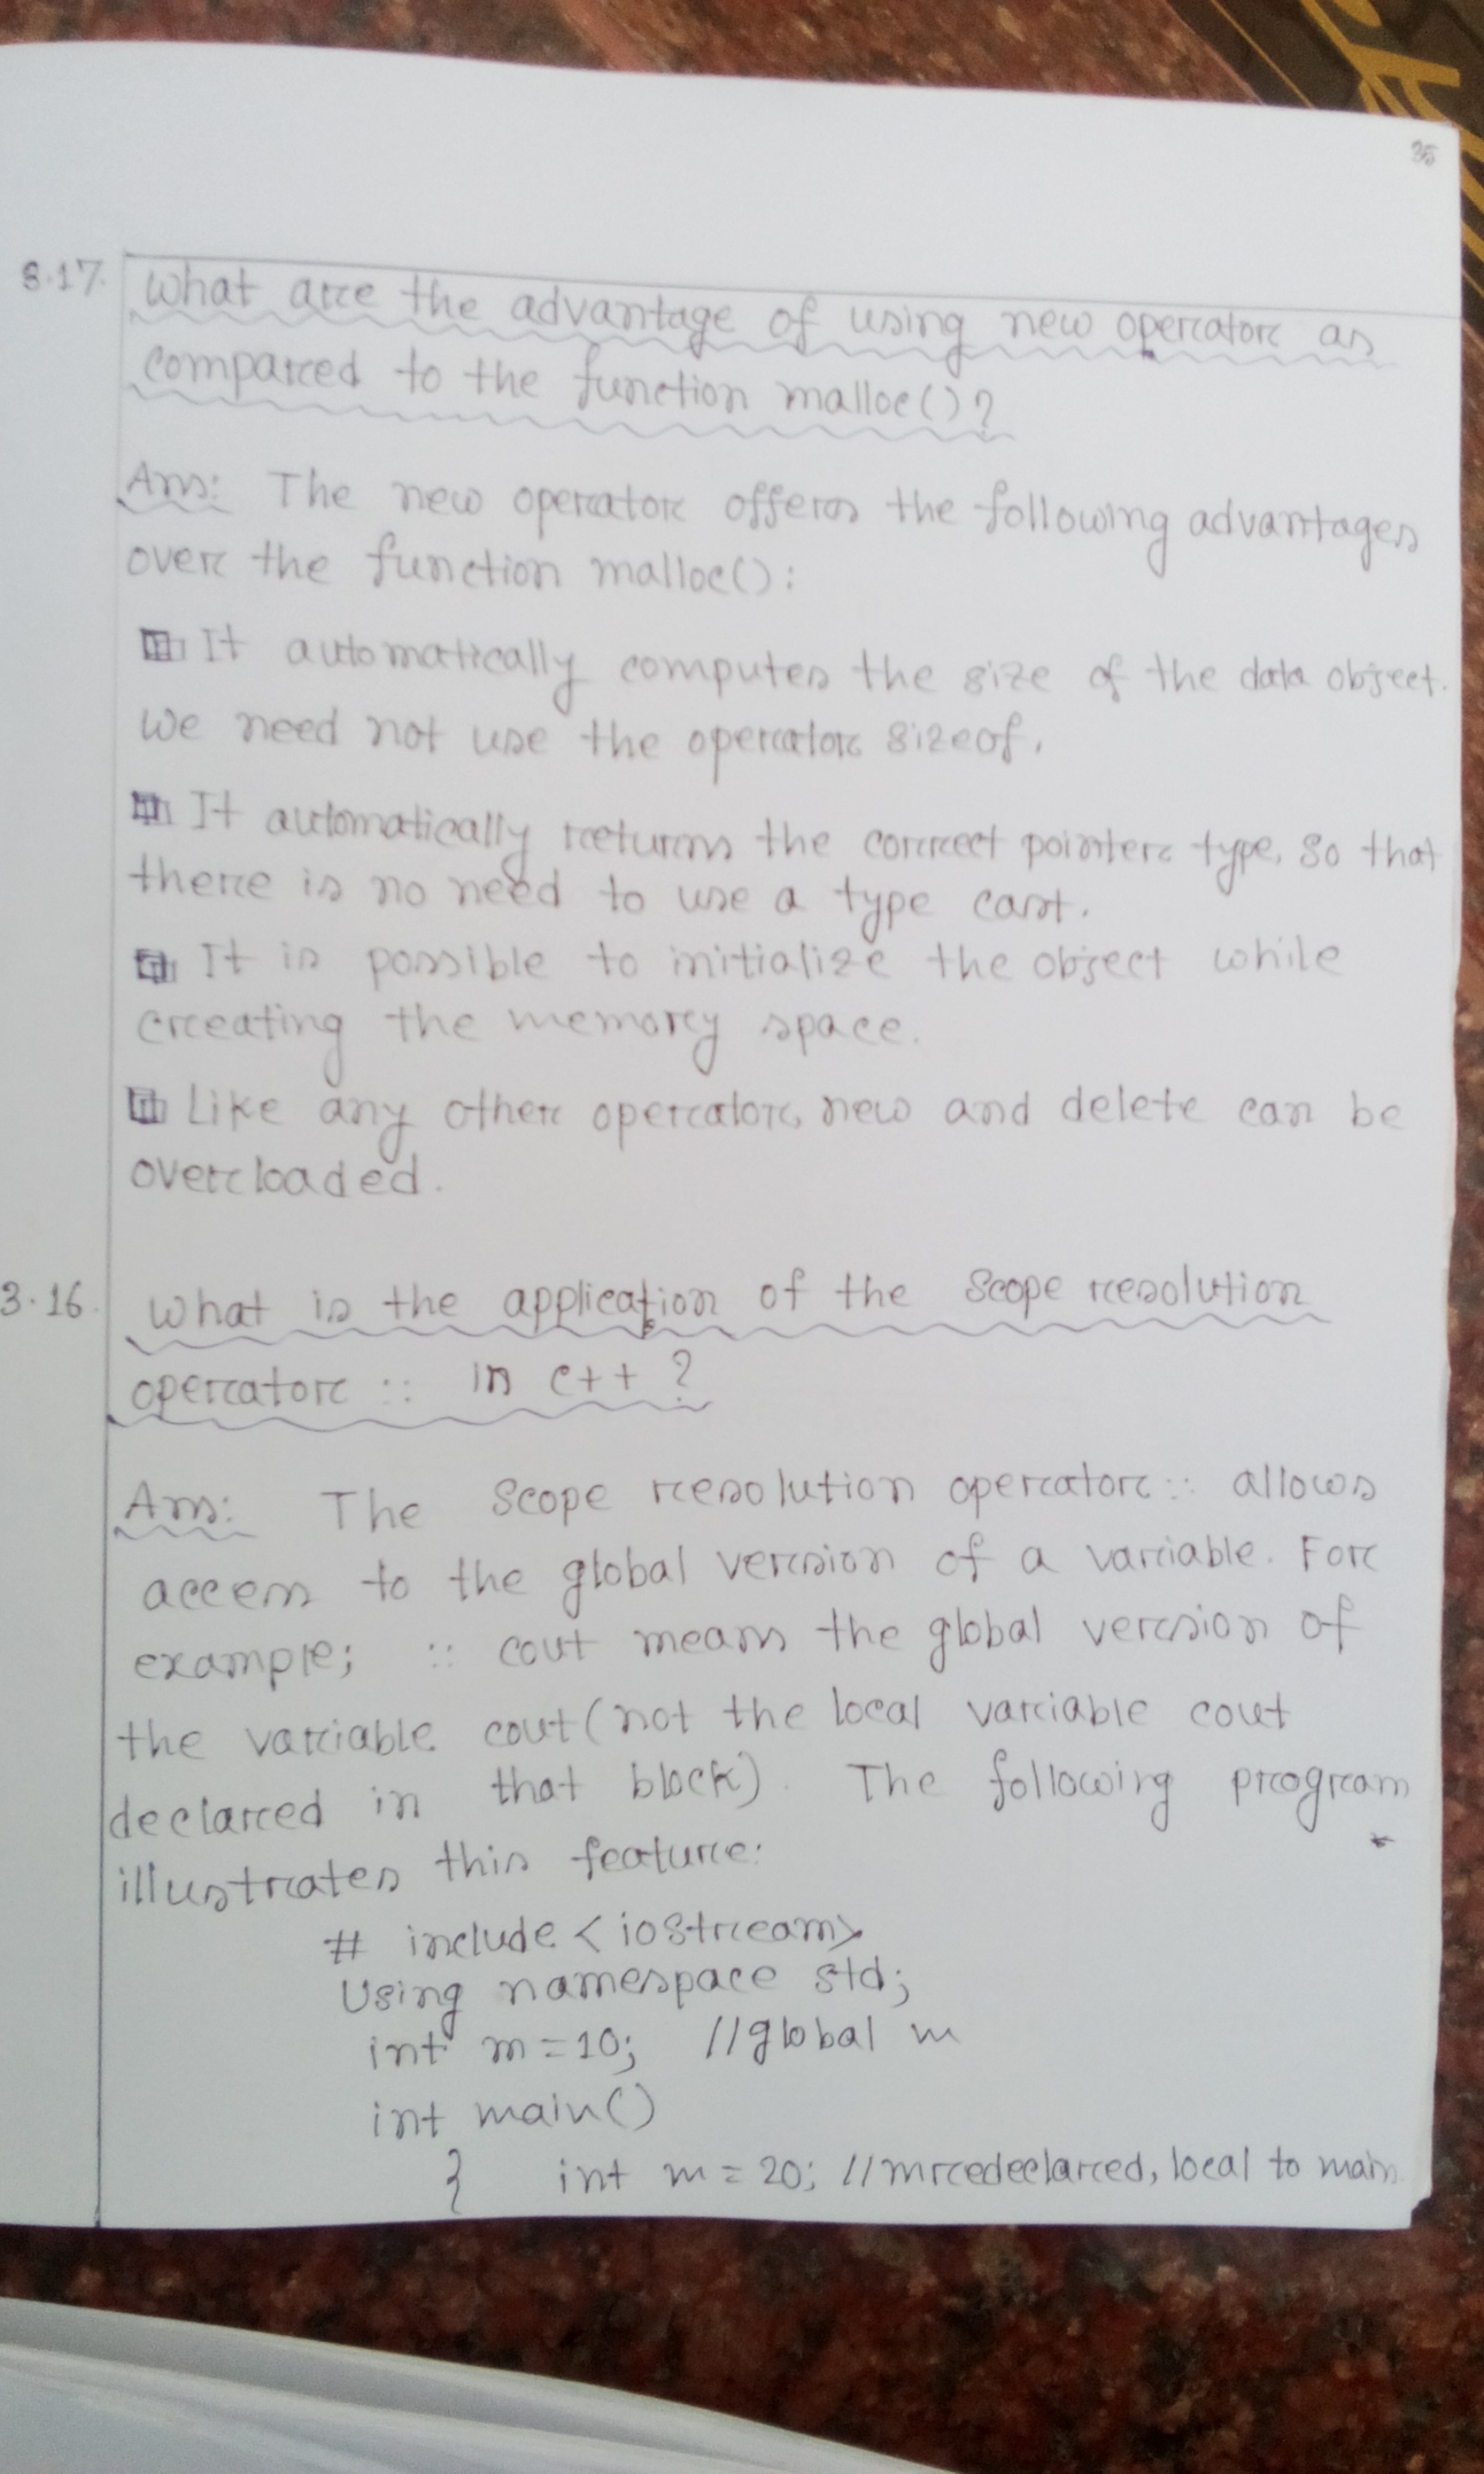 35
3.17. What are the advantage of using new operator as
compared to the function malloc()?
Ans: The new operator offers the following advantages
over the function malloc():
It automatically computes the size of the data object.
We need not use the operator sizeof.
It automatically returns the correct pointer type, so that
there is no need to use a type cast.
It is possible to initialize the object while
creating the memory space.
Like any other operator, new and delete can be
overloaded.
3.16. What is the application of the Scope resolution
operator :: in c++ ?
Ans: The Scope resolution operator :: allows
access to the global version of a variable. For
example; :: cout means the global version of
the variable cout (not the local variable cout
declared in that block). The following program
illustrates this feature:
# include <iostream>
Using namespace std;
int m = 10; //global m
int main()
{ int m = 20; //m redeclared, local to main